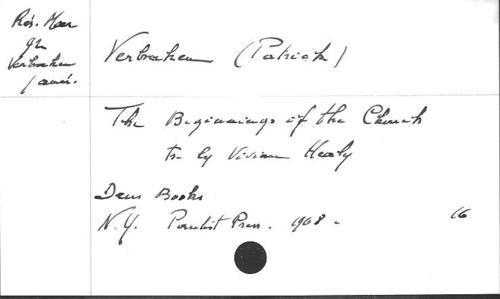 Rés. Haer
gr
Verbraken
/ amér.
Verbraken (Patrick)
The Beginnings of the Church
tr by Vivian Healy
Deus Books
N.Y. Paulist Press. 1968.
16